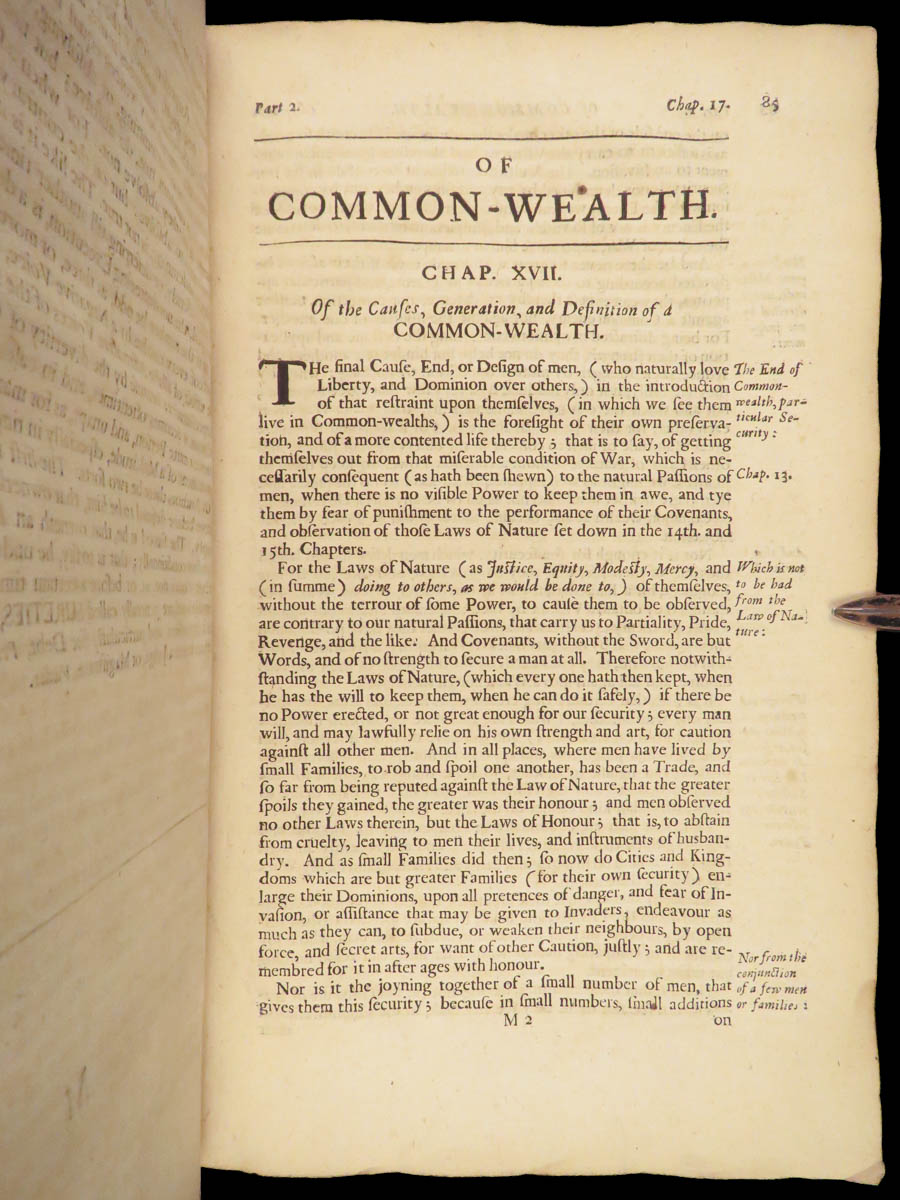 Part 2. Chap. 17. 85
OF
COMMON-WEALTH.
CHAP. XVII.
Of the Cauſes, Generation, and Definition of a
COMMON-WEALTH.
THe final Cauſe, End, or Deſign of men, (who naturally love
Liberty, and Dominion over others,) in the introduction
of that reſtraint upon themſelves, (in which we ſee them
live in Common-wealths,) is the foreſight of their own preſerva-
tion, and of a more contented life thereby; that is to ſay, of getting
themſelves out from that miſerable condition of War, which is ne-
ceſſarily conſequent (as hath been ſhewn) to the natural Paſſions of
men, when there is no viſible Power to keep them in awe, and tye
them by fear of puniſhment to the performance of their Covenants,
and obſervation of thoſe Laws of Nature ſet down in the 14th. and
15th. Chapters.
The End of
Common-
wealth, par-
ticular Se-
curity:
Chap. 13.
For the Laws of Nature (as Juſtice, Equity, Modeſty, Mercy, and
(in ſumme) doing to others, as we would be done to,) of themſelves,
without the terrour of ſome Power, to cauſe them to be obſerved,
are contrary to our natural Paſſions, that carry us to Partiality, Pride,
Revenge, and the like. And Covenants, without the Sword, are but
Words, and of no ſtrength to ſecure a man at all. Therefore notwith-
ſtanding the Laws of Nature, (which every one hath then kept, when
he has the will to keep them, when he can do it ſafely,) if there be
no Power erected, or not great enough for our ſecurity; every man
will, and may lawfully relie on his own ſtrength and art, for caution
againſt all other men. And in all places, where men have lived by
ſmall Families, to rob and ſpoil one another, has been a Trade, and
ſo far from being reputed againſt the Law of Nature, that the greater
ſpoils they gained, the greater was their honour; and men obſerved
no other Laws therein, but the Laws of Honour; that is, to abſtain
from cruelty, leaving to men their lives, and inſtruments of husban-
dry. And as ſmall Families did then; ſo now do Cities and King-
doms which are but greater Families (for their own ſecurity) en-
large their Dominions, upon all pretences of danger, and fear of In-
vaſion, or aſſiſtance that may be given to Invaders, endeavour as
much as they can, to ſubdue, or weaken their neighbours, by open
force, and ſecret arts, for want of other Caution, juſtly; and are re-
membred for it in after ages with honour.
Which is not
to be had
from the
Law of Na-
ture:
Nor is it the joyning together of a ſmall number of men, that
gives them this ſecurity; becauſe in ſmall numbers, ſmall additions
Nor from the
conjunction
of a few men
or families:
M 2 on